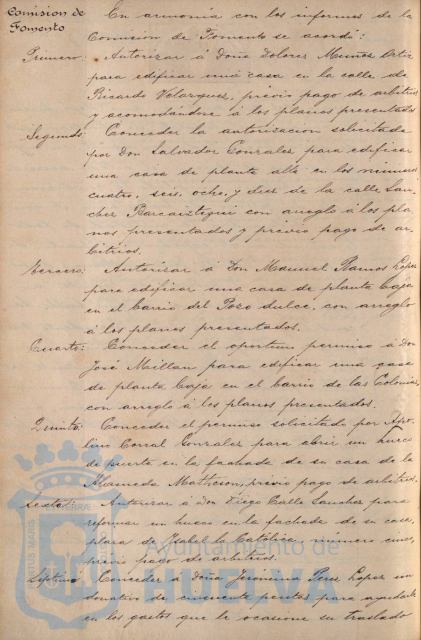 Comision de
Fomento
En armonía con los informes de la
Comisión de Fomento se acordó:
Primero: Autorizar á Doña Dolores Muñoz Ortiz
para edificar una casa en la calle de
Ricardo Velazquez, previo pago de arbitrios
y acomodandose á los planos presentados
Segundo: Conceder la autorizacion solicitada
por Don Salvador Gonzalez para edificar
una casa de planta alta en los números
cuatro, seis, ocho, y diez de la calle San-
chez Barcaiztegui con arreglo á los pla-
nos presentados y previo pago de ar-
bitrios.
Tercero: Autorizar á Don Manuel Ramos Lopez
para edificar una casa de planta baja
en el barrio del Pozo dulce, con arreglo
á los planos presentados.
Cuarto: Conceder el oportuno permiso á Don
José Maillan para edificar una casa
de planta baja en el barrio de las Colonias
con arreglo á los planos presentados.
Quinto: Conceder el permiso solicitado por Apo-
lino Corral Gonzalez para abrir un hueco
de puerta en la fachada de su casa de la
Alameda previo pago de arbitrios.
Sexto: Autorizar á Don Diego Calle Sanchez para
reformar un hueco en la fachada de su casa,
plaza de Ysabel la Católica, número cinco,
previo pago de arbitrios.
Septimo: Conceder á Doña Jeronima Perez Lopez un
donativo de cincuenta pesetas para ayudarle
en los gastos que le ocasione su traslado
Ayuntamiento de
HUELVA